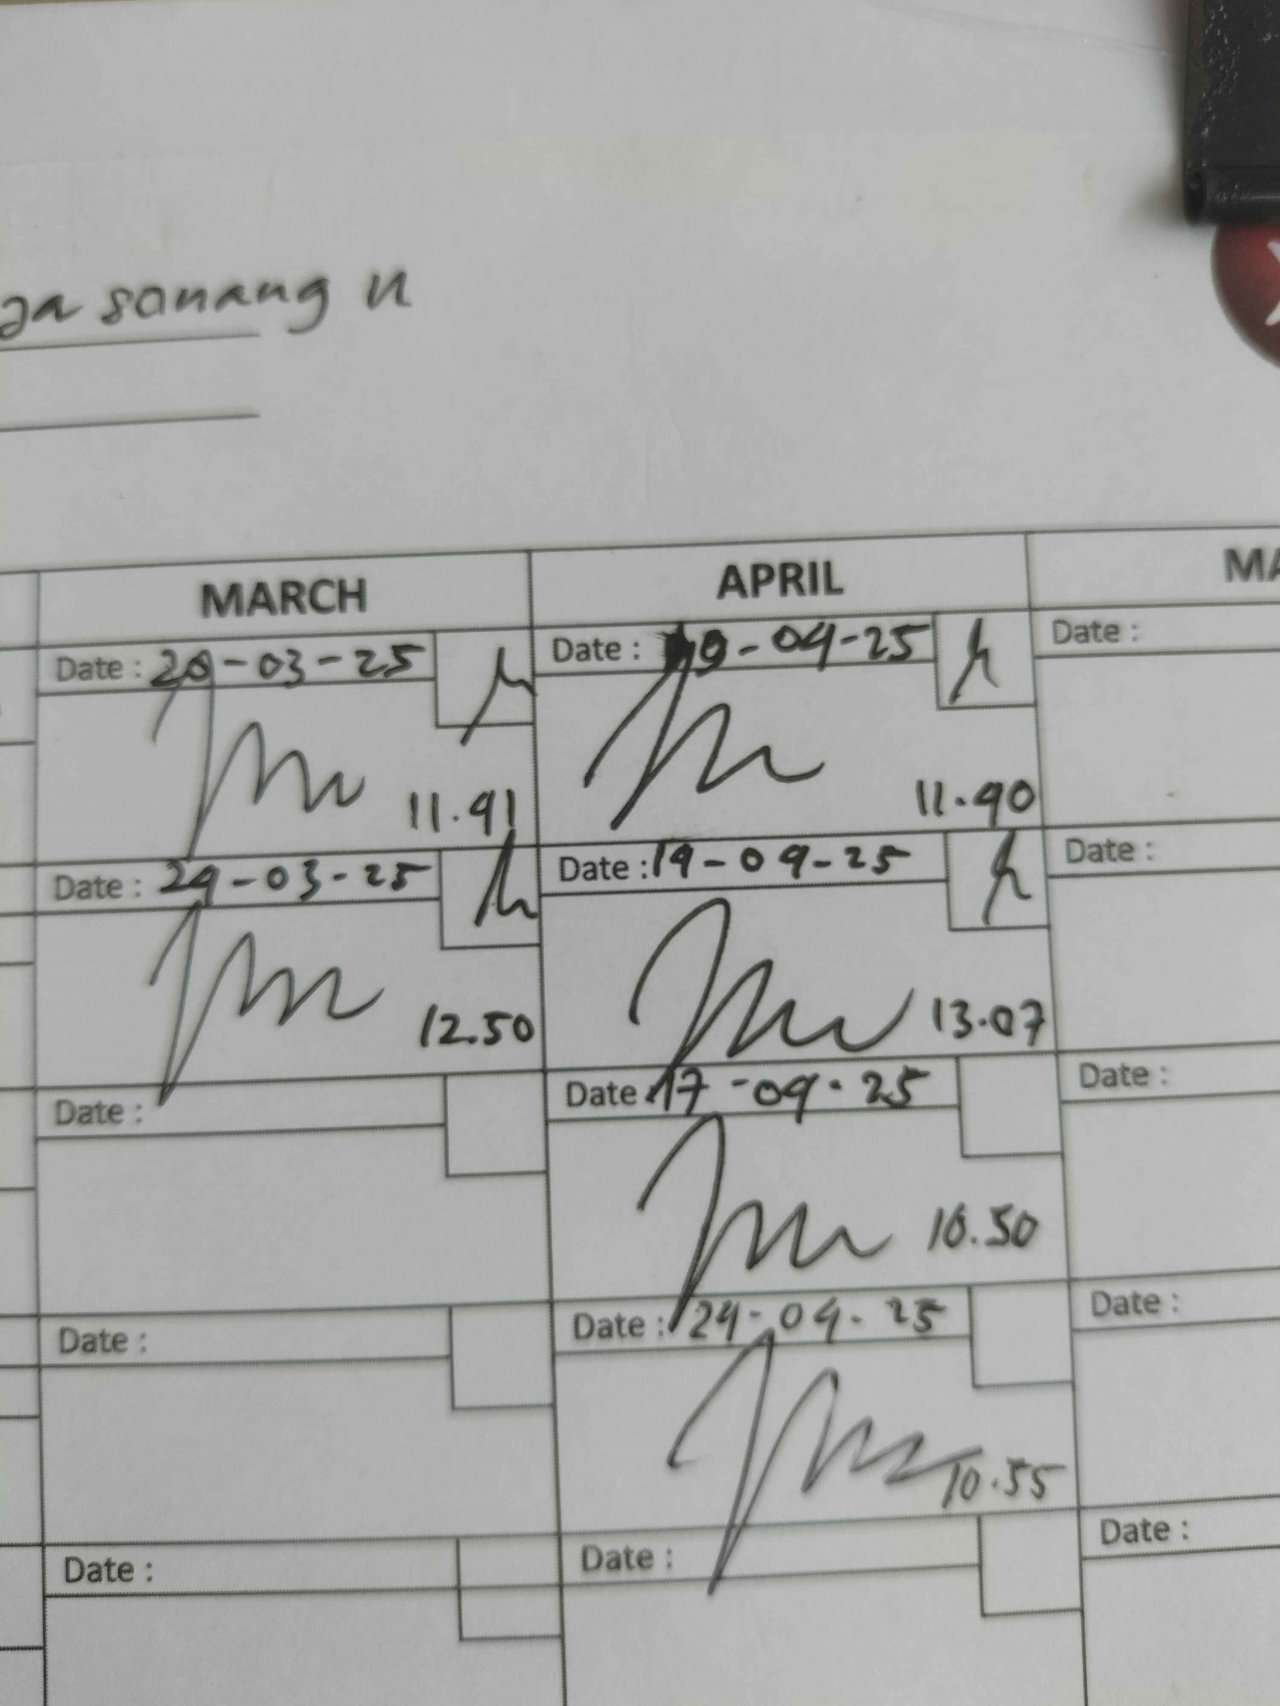 sanang n
MARCH
APRIL
Date : 20-03-25
Date : -04-25
Date :
11.41
11.40
Date : 24-03-25
Date : 14-04-25
Date :
12.50
13.07
Date :
Date : 17-04-25
Date :
10.50
Date :
Date : 24-04-25
Date :
10.55
Date :
Date :
Date :